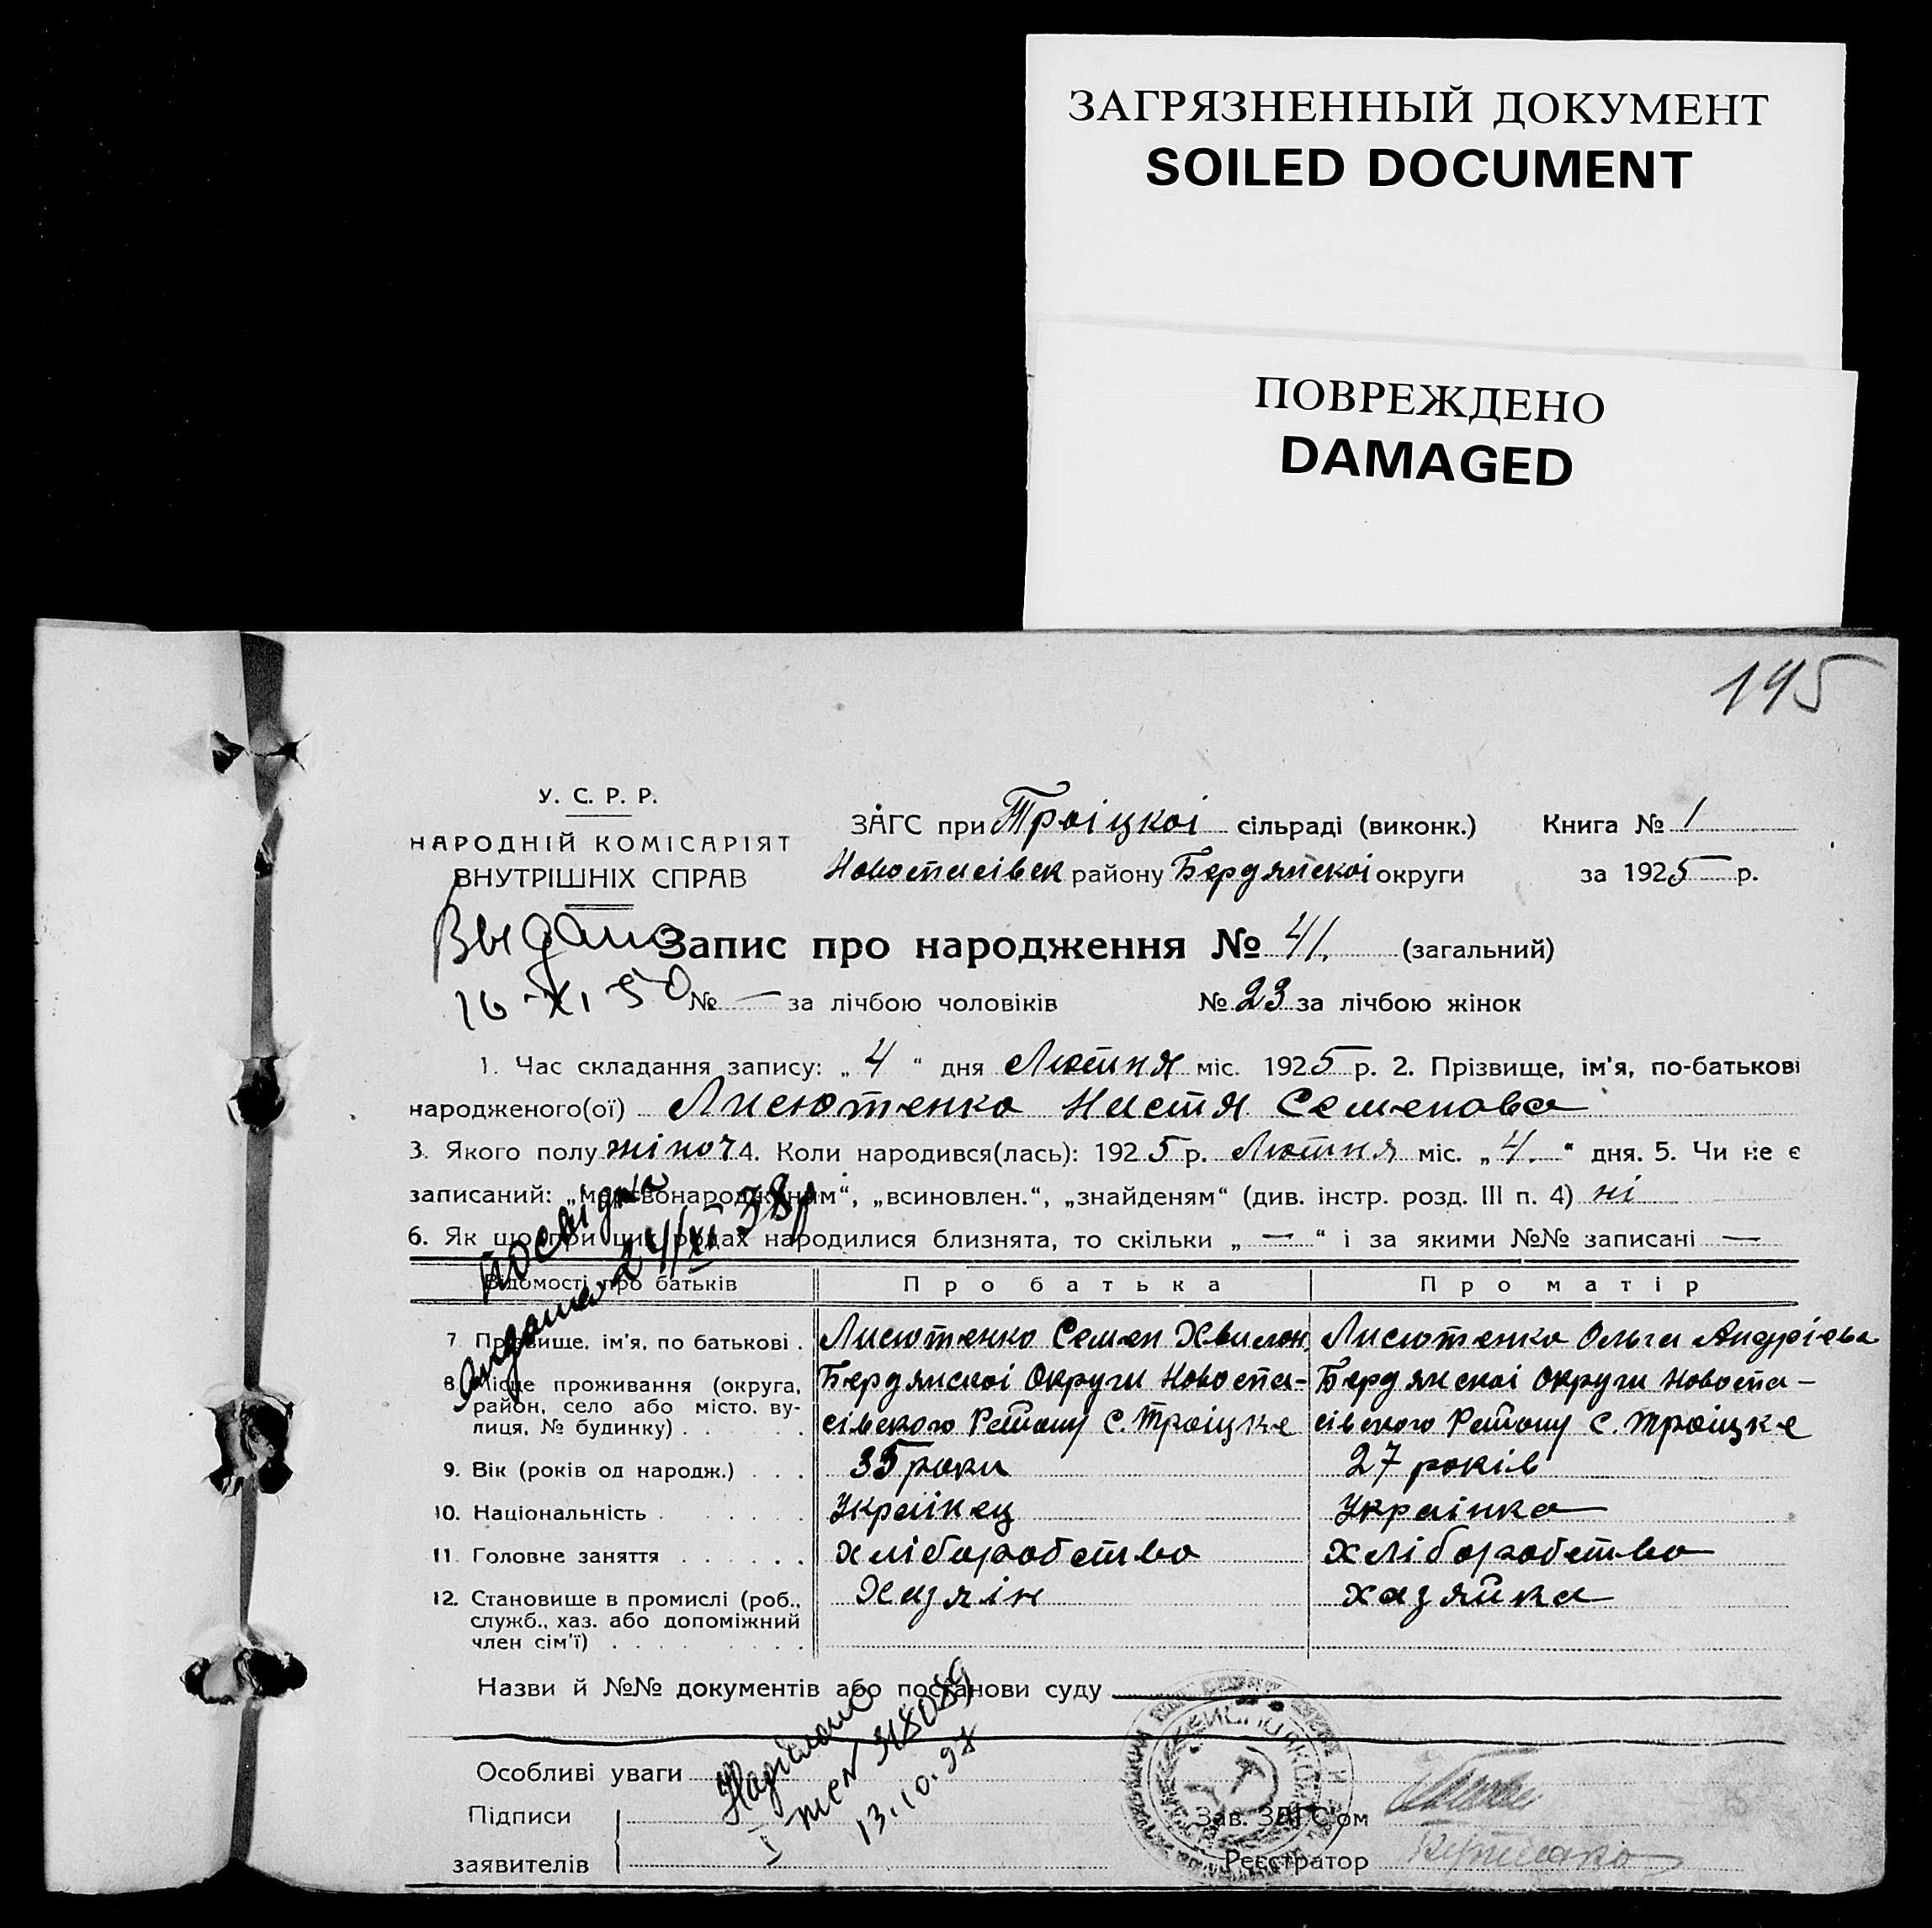 ЗАГРЯЗНЕННЫЙ ДОКУМЕНТ
SOILED DOCUMENT
ПОВРЕЖДЕНО
DAMAGED
195
У. С. Р. Р.
НАРОДНІЙ КОМІСАРІЯТ
ВНУТРІШНІХ СПРАВ
ЗАГС при Троіцкоі сільраді (виконк.) Книга № 1
Новоспасівск району Бердянскоі округи за 1925 р.
Выдано
16-XI 50
Запис про народження № 41. (загальний)
№ — за лічбою чоловіків № 23 за лічбою жінок
1. Час складання запису: „ 4 “ дня Лютня міс. 1925 р. 2. Прізвище, ім'я, по-батькові
народженого(ої) Лисютенко Настя Семенова
3. Якого полу жіноч 4. Коли народився(лась): 1925 р. Лютня міс. „ 4. “ дня. 5. Чи не є
записаний: „мертвонародженим“, „всиновлен.“, „знайденям“ (див. інстр. розд. III п. 4) ні
6. Як що при цих родах народилися близнята, то скільки „ — “ і за якими №№ записані —
посвідка
видана 24/XI 38р
Відомості про батьків Про батька Про матір
7. Прізвище, ім'я, по батькові . Лисютенко Семен Хвилон. Лисютенко Ольга Андріева
8. Місце проживання (округа, район, село або місто, вулиця, № будинку) . . . . . Бердянскоі Округи Новоспа- Бердянскоі Округи Новоспа-
сівского Району С. Троіцке сівского Району С. Троіцке
9. Вік (років од народж.) . . . 35 роки 27 років
10. Національність . . . . . . . Украінец Украінка
11. Головне заняття . . . . . . хліборобство хліборобство
12. Становище в промислі (роб., Хазяін хазяйка
служб., хаз. або допоміжний
член сім'ї) . . . . . . . . .
Назви й №№ документів або постанови суду
Особливі уваги
Надіслано
318089
13.10.
Підписи
заявителів
Зав. ЗАГС'ом
Реєстратор